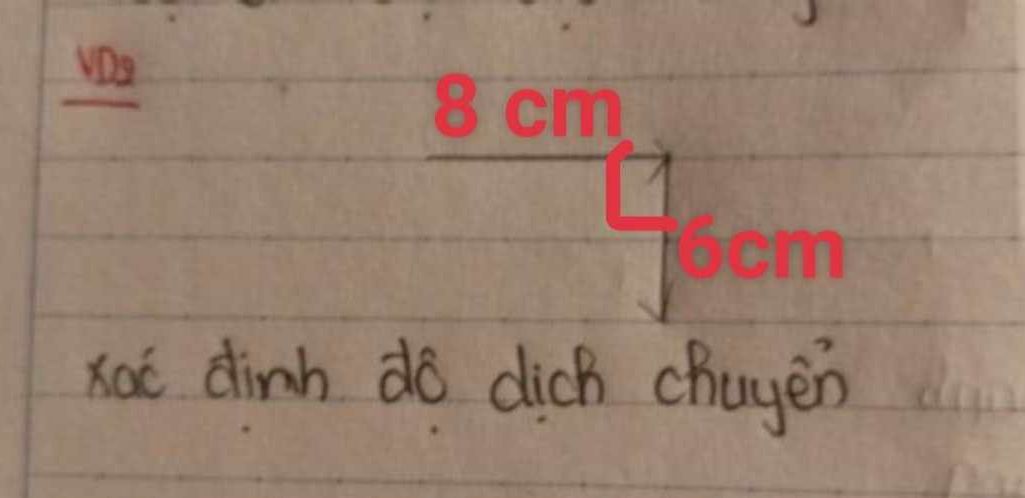 VD9
8 cm
6cm
xác định độ dịch chuyển